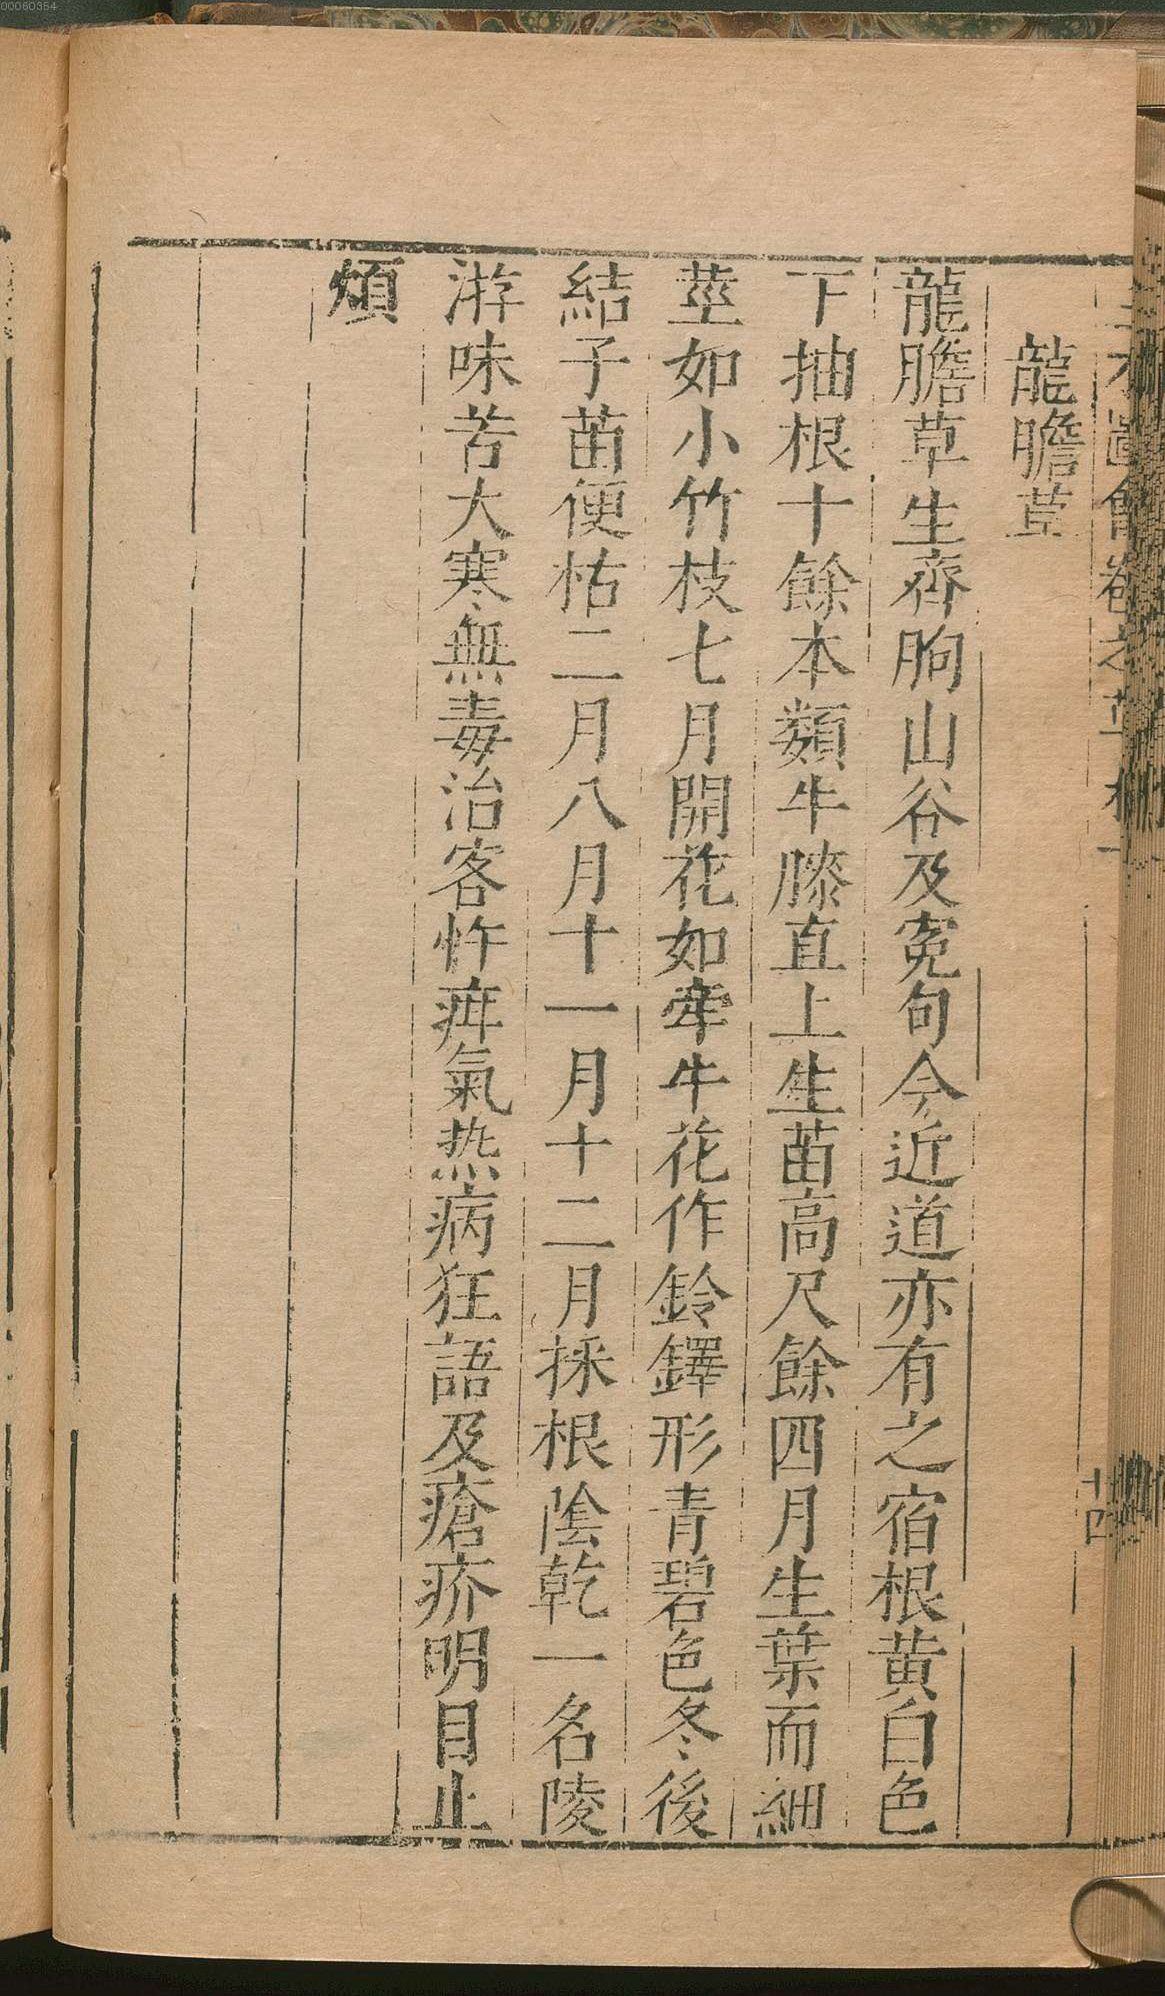 00060354
龍膽草
龍膽草生齊朐山谷及寃句今近道亦有之宿根黄白色
下抽根十餘本類牛膝直上生苗高尺餘四月生葉而細
莖如小竹枝七月開花如牽牛花作鈴鐸形青碧色冬後
結子苗便枯二月八月十一月十二月採根陰乾一名陵
游味苦大寒無毒治客忤疳氣热病狂語及瘡疥明目止
煩
十四